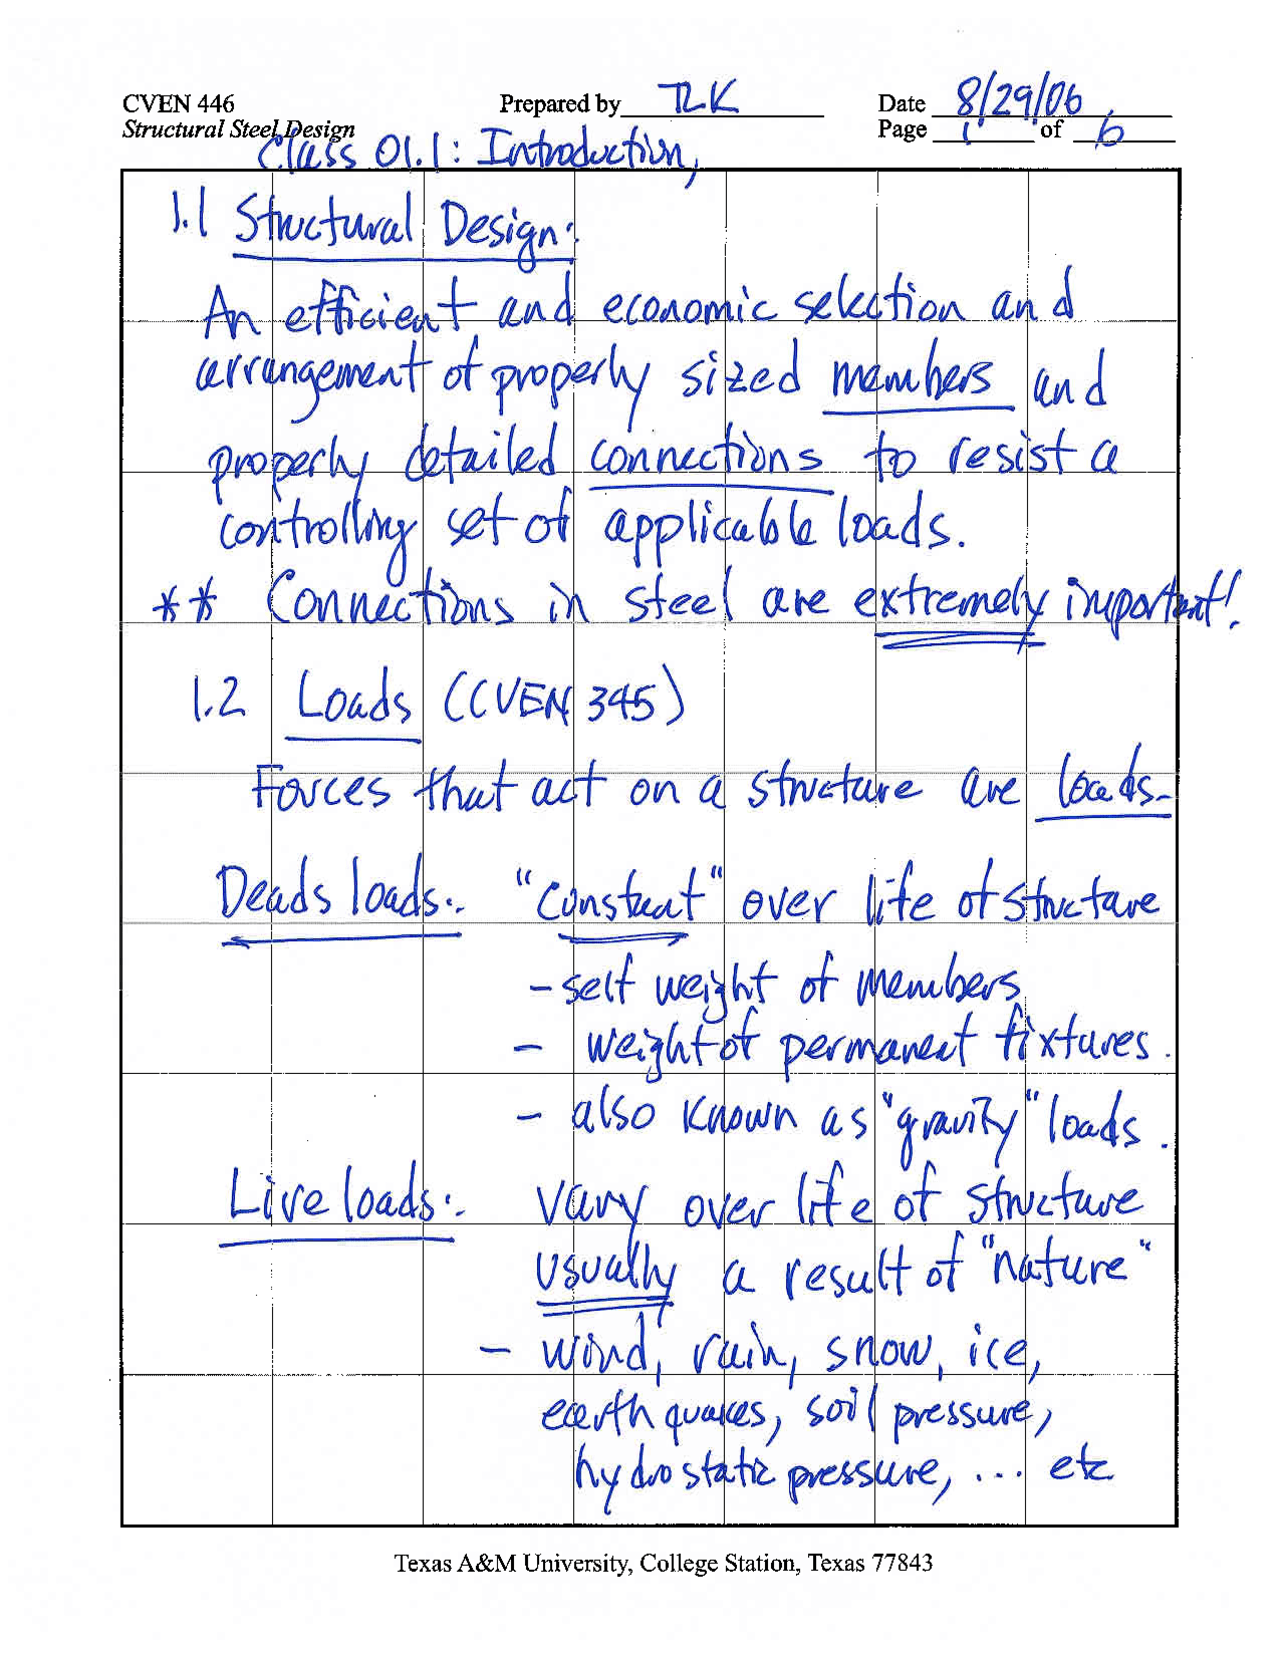 CVEN 446 Prepared by TLK Date 8/29/06
Structural Steel Design Page 1 of 6
Class 01.1: Introduction,
1.1 Structural Design:
An efficient and economic selection and
arrangement of properly sized members and
properly detailed connections to resist a
controlling set of applicable loads.
** Connections in steel are extremely important!
1.2 Loads (CVEN 345)
Forces that act on a structure are loads.
Deads loads: "constant" over life of structure
- self weight of members
- weight of permanent fixtures.
- also known as "gravity" loads.
Live loads: vary over life of structure
usually a result of "nature"
- wind, rain, snow, ice,
earthquakes, soil pressure,
hydrostatic pressure, ... etc
Texas A&M University, College Station, Texas 77843